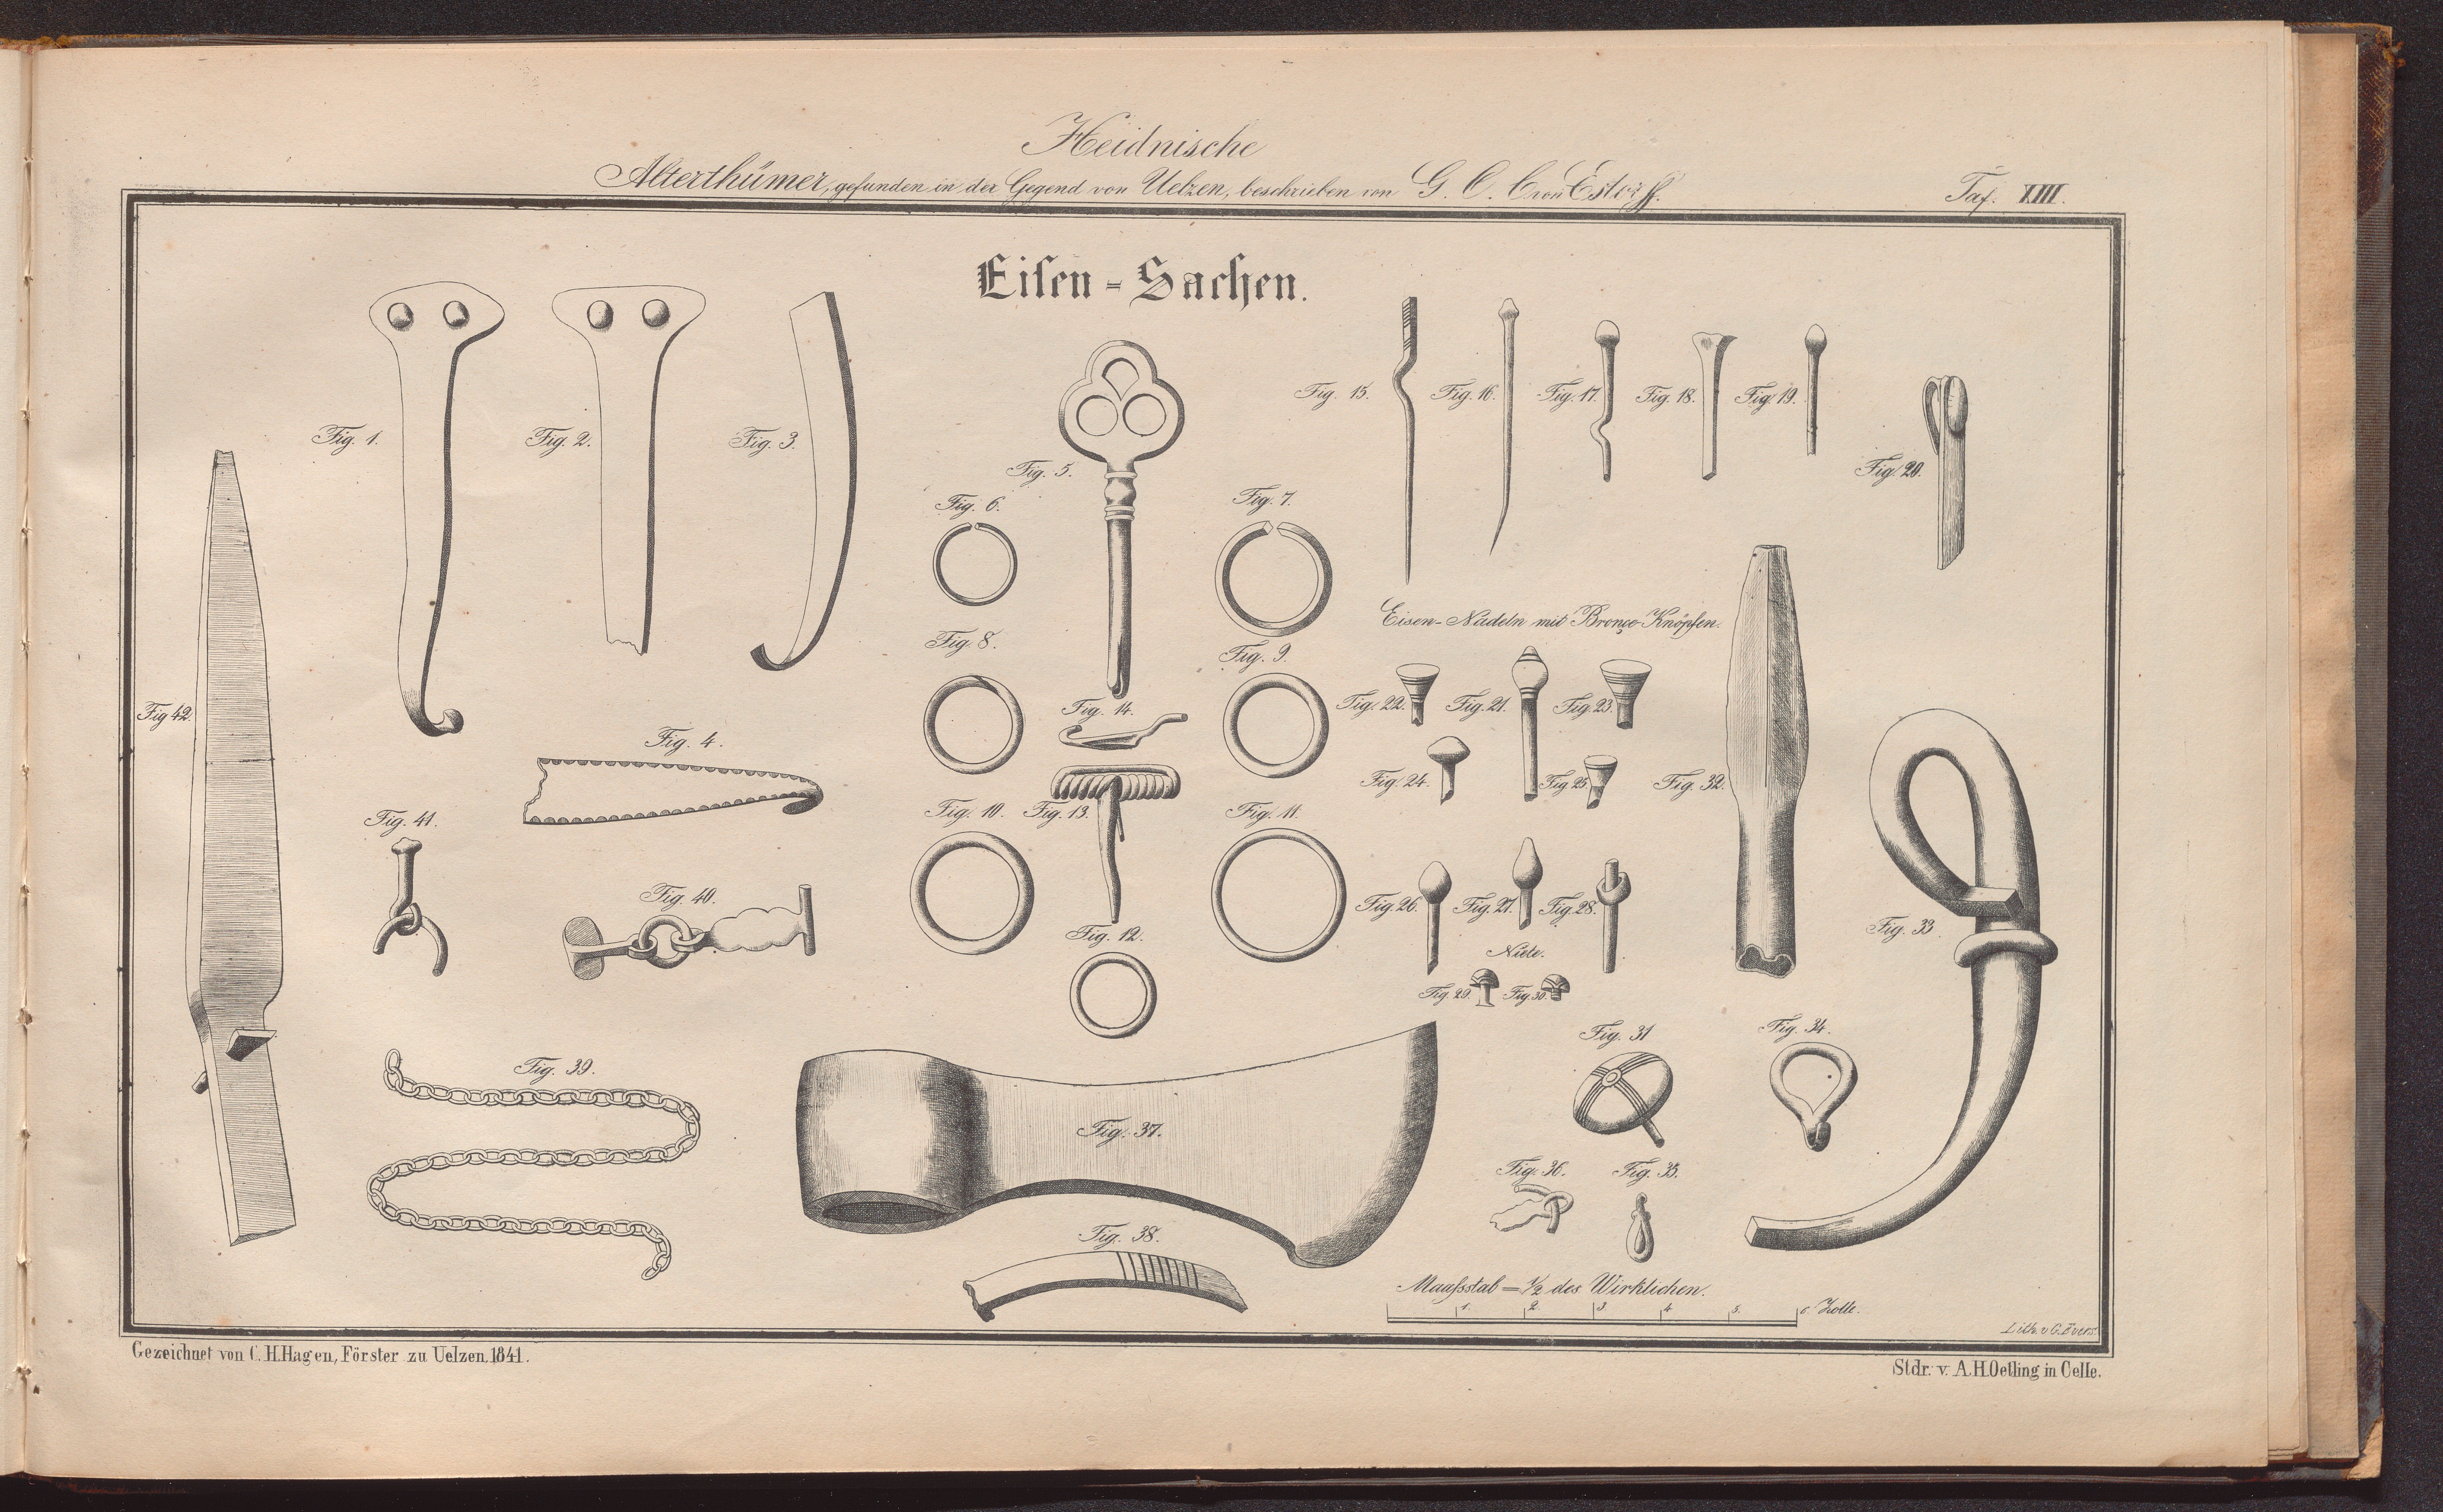 Heidnische
Alterthümer, gefunden in der Gegend von Uelzen, beschrieben von G. O. C von Estorff.
Taf. XIII.
Eiſen-Sachen.
Fig. 1.
Fig. 2.
Fig. 3.
Fig. 5.
Fig. 15.
Fig. 16.
Fig. 17.
Fig. 18.
Fig. 19.
Fig. 20.
Fig. 6.
Fig. 7.
Eisen-Nadeln mit Bronçe-Knöpfen.
Fig. 8.
Fig. 9.
Fig 42.
Fig. 4.
Fig. 14.
Fig. 22.
Fig. 21.
Fig. 23.
Fig. 24.
Fig. 25.
Fig. 32.
Fig. 41.
Fig. 10.
Fig. 13.
Fig. 11.
Fig. 40.
Fig. 12.
Fig. 26.
Fig. 27.
Fig. 28.
Fig. 33.
Niete.
Fig. 29.
Fig. 30.
Fig. 31
Fig. 34.
Fig. 39.
Fig. 37.
Fig. 36.
Fig. 35.
Fig. 38.
Maaſsstab = 1/2 des Wirklichen.
1. 2. 3. 4. 5. 6. Zolle.
Lith. v. G. Evers.
Gezeichnet von C. H. Hagen, Förster zu Uelzen, 1841.
Stdr. v. A. H. Oetling in Celle.